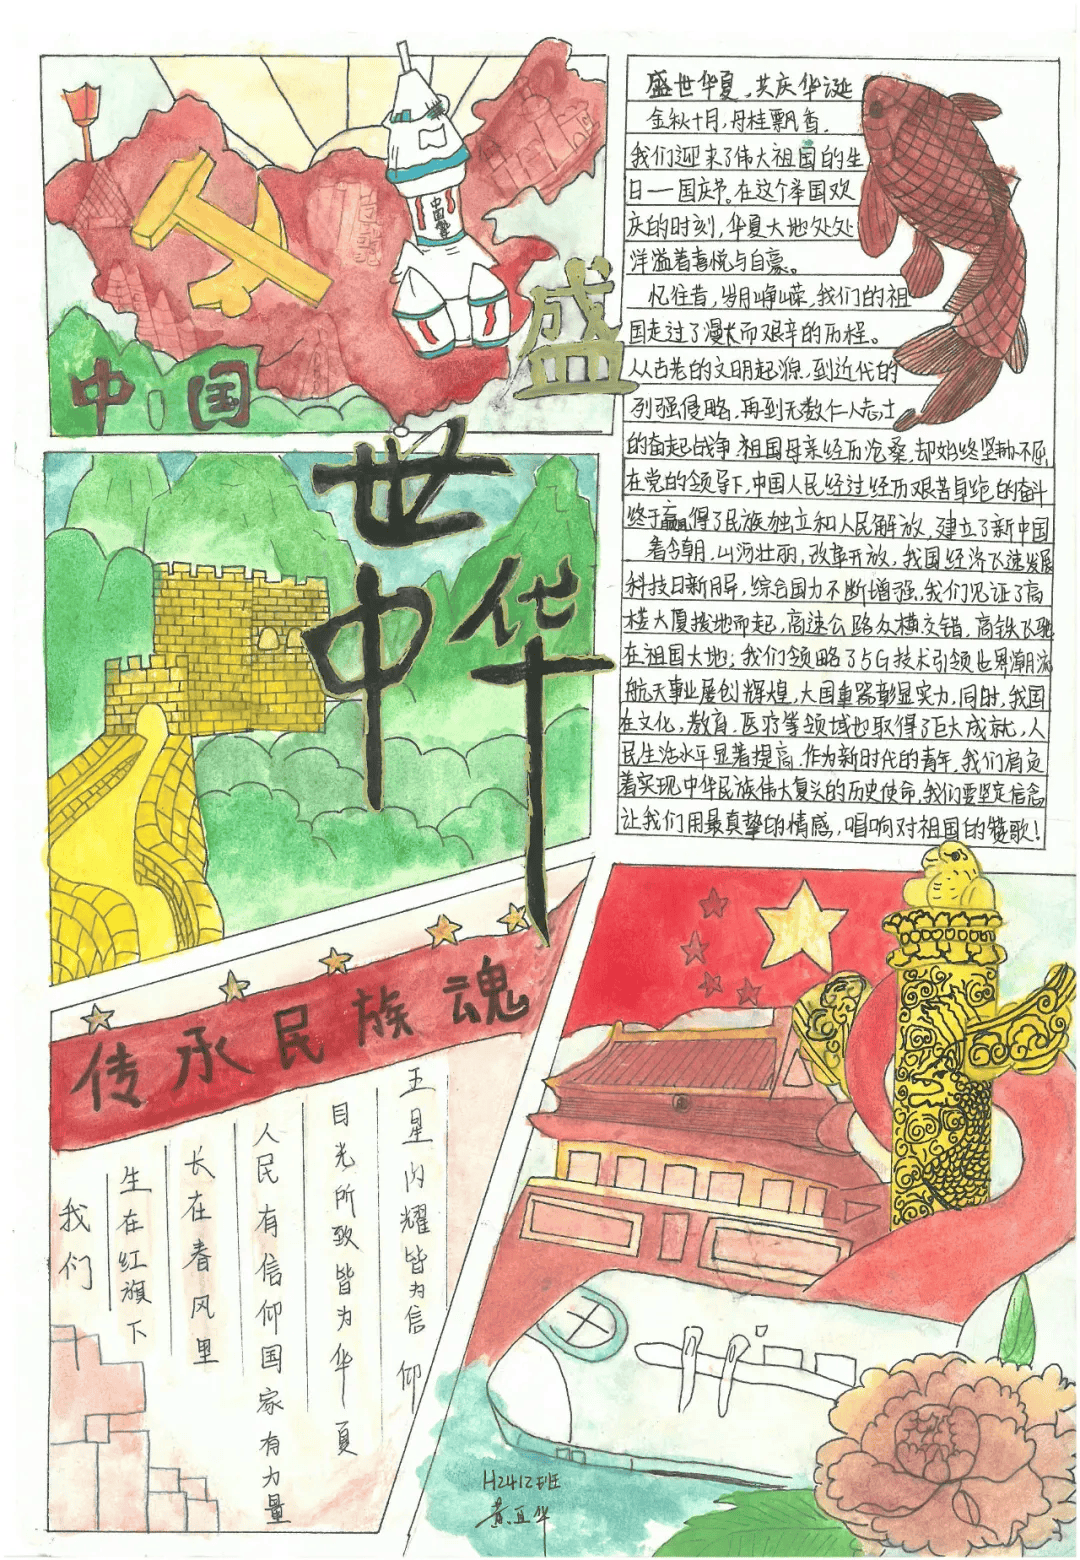 中国
盛
世
中华
盛世华夏，共庆华诞
金秋十月，丹桂飘香，
我们迎来了伟大祖国的生
日一国庆节。在这个举国欢
庆的时刻，华夏大地处处
洋溢着喜悦与自豪。
忆往昔，岁月峥嵘，我们的祖
国走过了漫长而艰辛的历程。
从古老的文明起源，到近代的
列强侵略，再到无数仁人志士
的奋起战争，祖国母亲经历沧桑，却始终坚韧不屈，
在党的领导下，中国人民经过经历艰苦卓绝的奋斗
终于赢得了民族独立和人民解放，建立了新中国
看今朝，山河壮丽，改革开放，我国经济飞速发展
科技日新月异，综合国力不断增强，我们见证了高
楼大厦拔地而起，高速公路纵横交错，高铁飞驰
在祖国大地；我们领略了5G技术引领世界潮流
航天事业屡创辉煌，大国重器彰显实力，同时，我国
在文化，教育，医疗等领域也取得了巨大成就，人
民生活水平显著提高，作为新时代的青年，我们肩负
着实现中华民族伟大复兴的历史使命，我们要坚定信念
让我们用最真挚的情感，唱响对祖国的赞歌！
传承民族魂
我们
生在红旗下
长在春风里
人民有信仰国家有力量
目光所致皆为华夏
五星内耀皆为信仰
H2412班
黄宜华